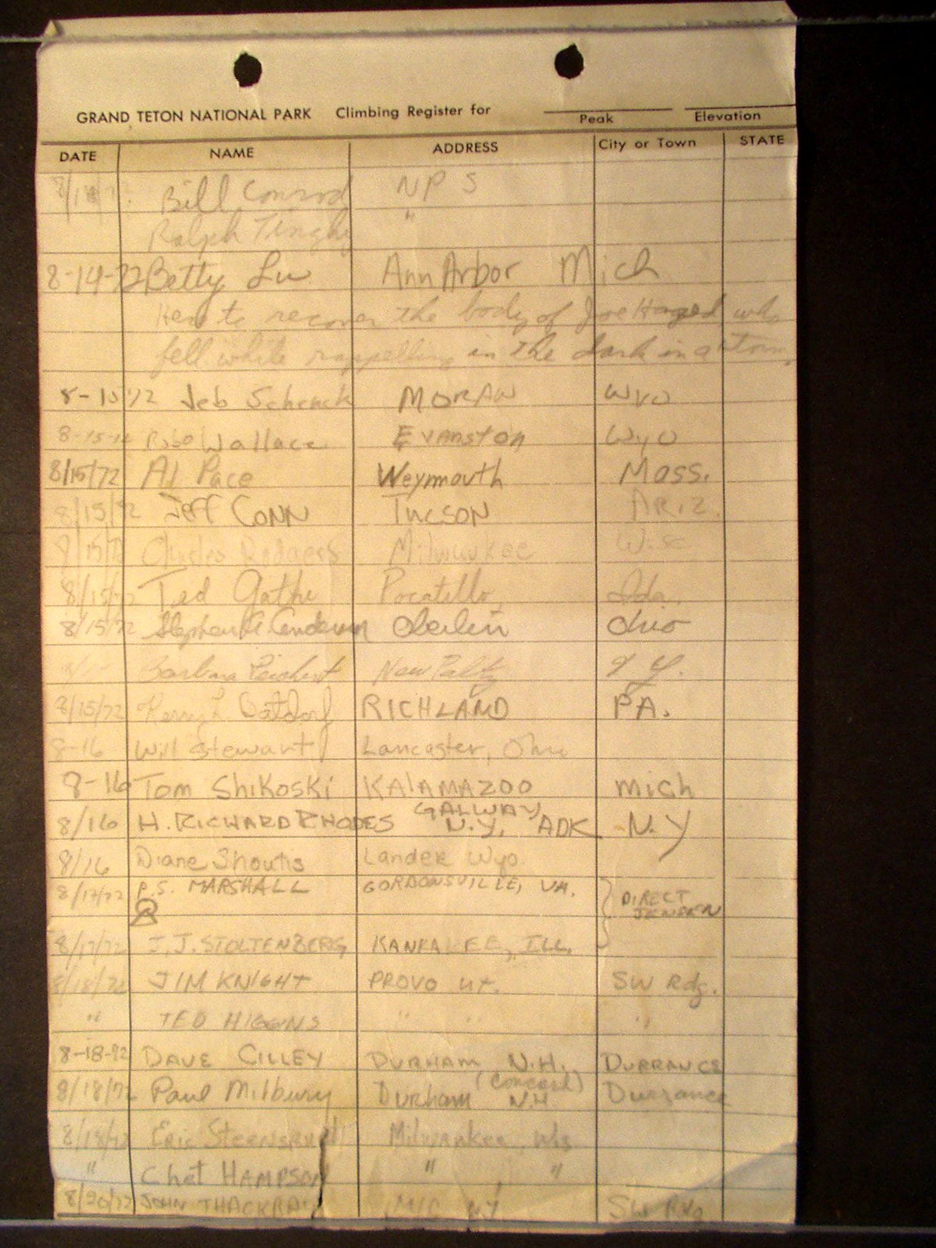 GRAND TETON NATIONAL PARK Climbing Register for
Peak Elevation
DATE NAME ADDRESS City or Town STATE
Bill Conrod NPS
Ralph Tingey "
8-14-72 Betty Lu Ann Arbor Mich
Here to recover the body of Joe who
fell while rappelling in the dark in a storm.
Jeb Schenck MORAN WYO
8-15-72 Wallace EVANSTON WYO
8/15/72 Al Pace Weymouth Mass.
8/15/72 Jeff CONN TUCSON ARIZ.
8/15/72 Charles Milwaukee Wisc
8/15/72 Ted Pocatello Ida.
8/15/72 Oberlin Ohio
Barbara New Paltz N.Y.
8/15/72 RICHLAND PA.
8-16 Will Stewart Lancaster, Ohio
8-16 Tom Shikoski KALAMAZOO Mich
8/16 H. RICHARD RHODES GALWAY N.Y, ADK N.Y
8/16 Diane Lander Wyo.
8/17/72 P.S. MARSHALL GORDONSVILLE, VA. DIRECT JENSEN
8/17/72 J.J. STOLTENBERG KANKAKEE, ILL.
8/18/72 JIM KNIGHT PROVO UT. SW Rdg.
" TED HIGGINS " " "
8-18-72 DAVE CILLEY DURHAM N.H. DURRANCE
8/18/72 Paul Milbury Durham (Concord) N.H. Durrance
Eric Milwaukee Wis
" Chet HAMPSON " "
8/20/72 JOHN SW Rdg